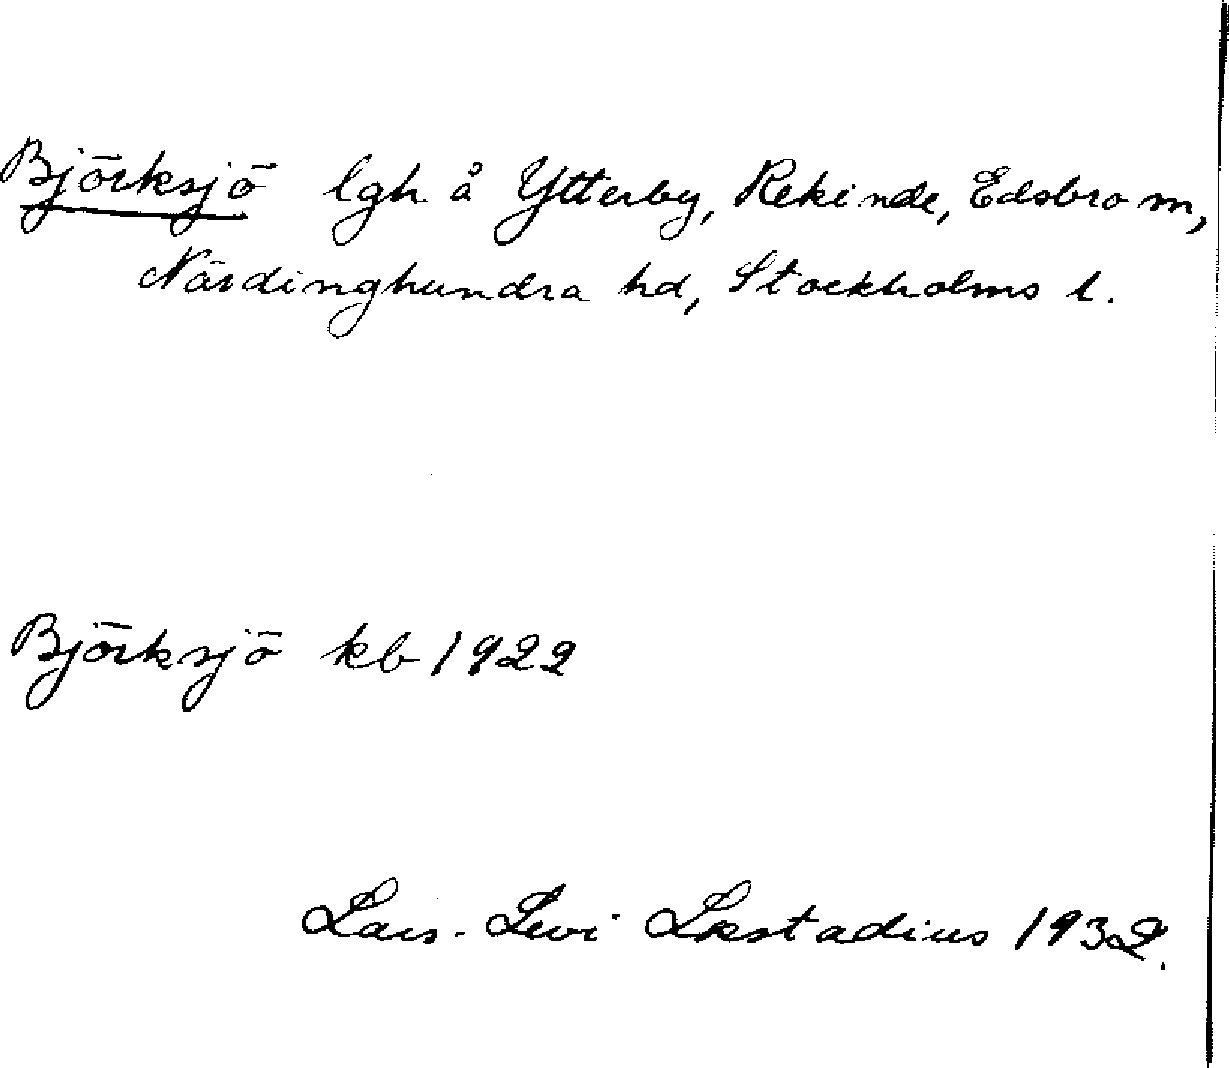 Björksjö lgh å Ytterby, Rekinde, Edsbro sn,
Närdinghundra hd, Stockholms l.
Björksjö kb 1922
Lars-Levi Læstadius 1932.